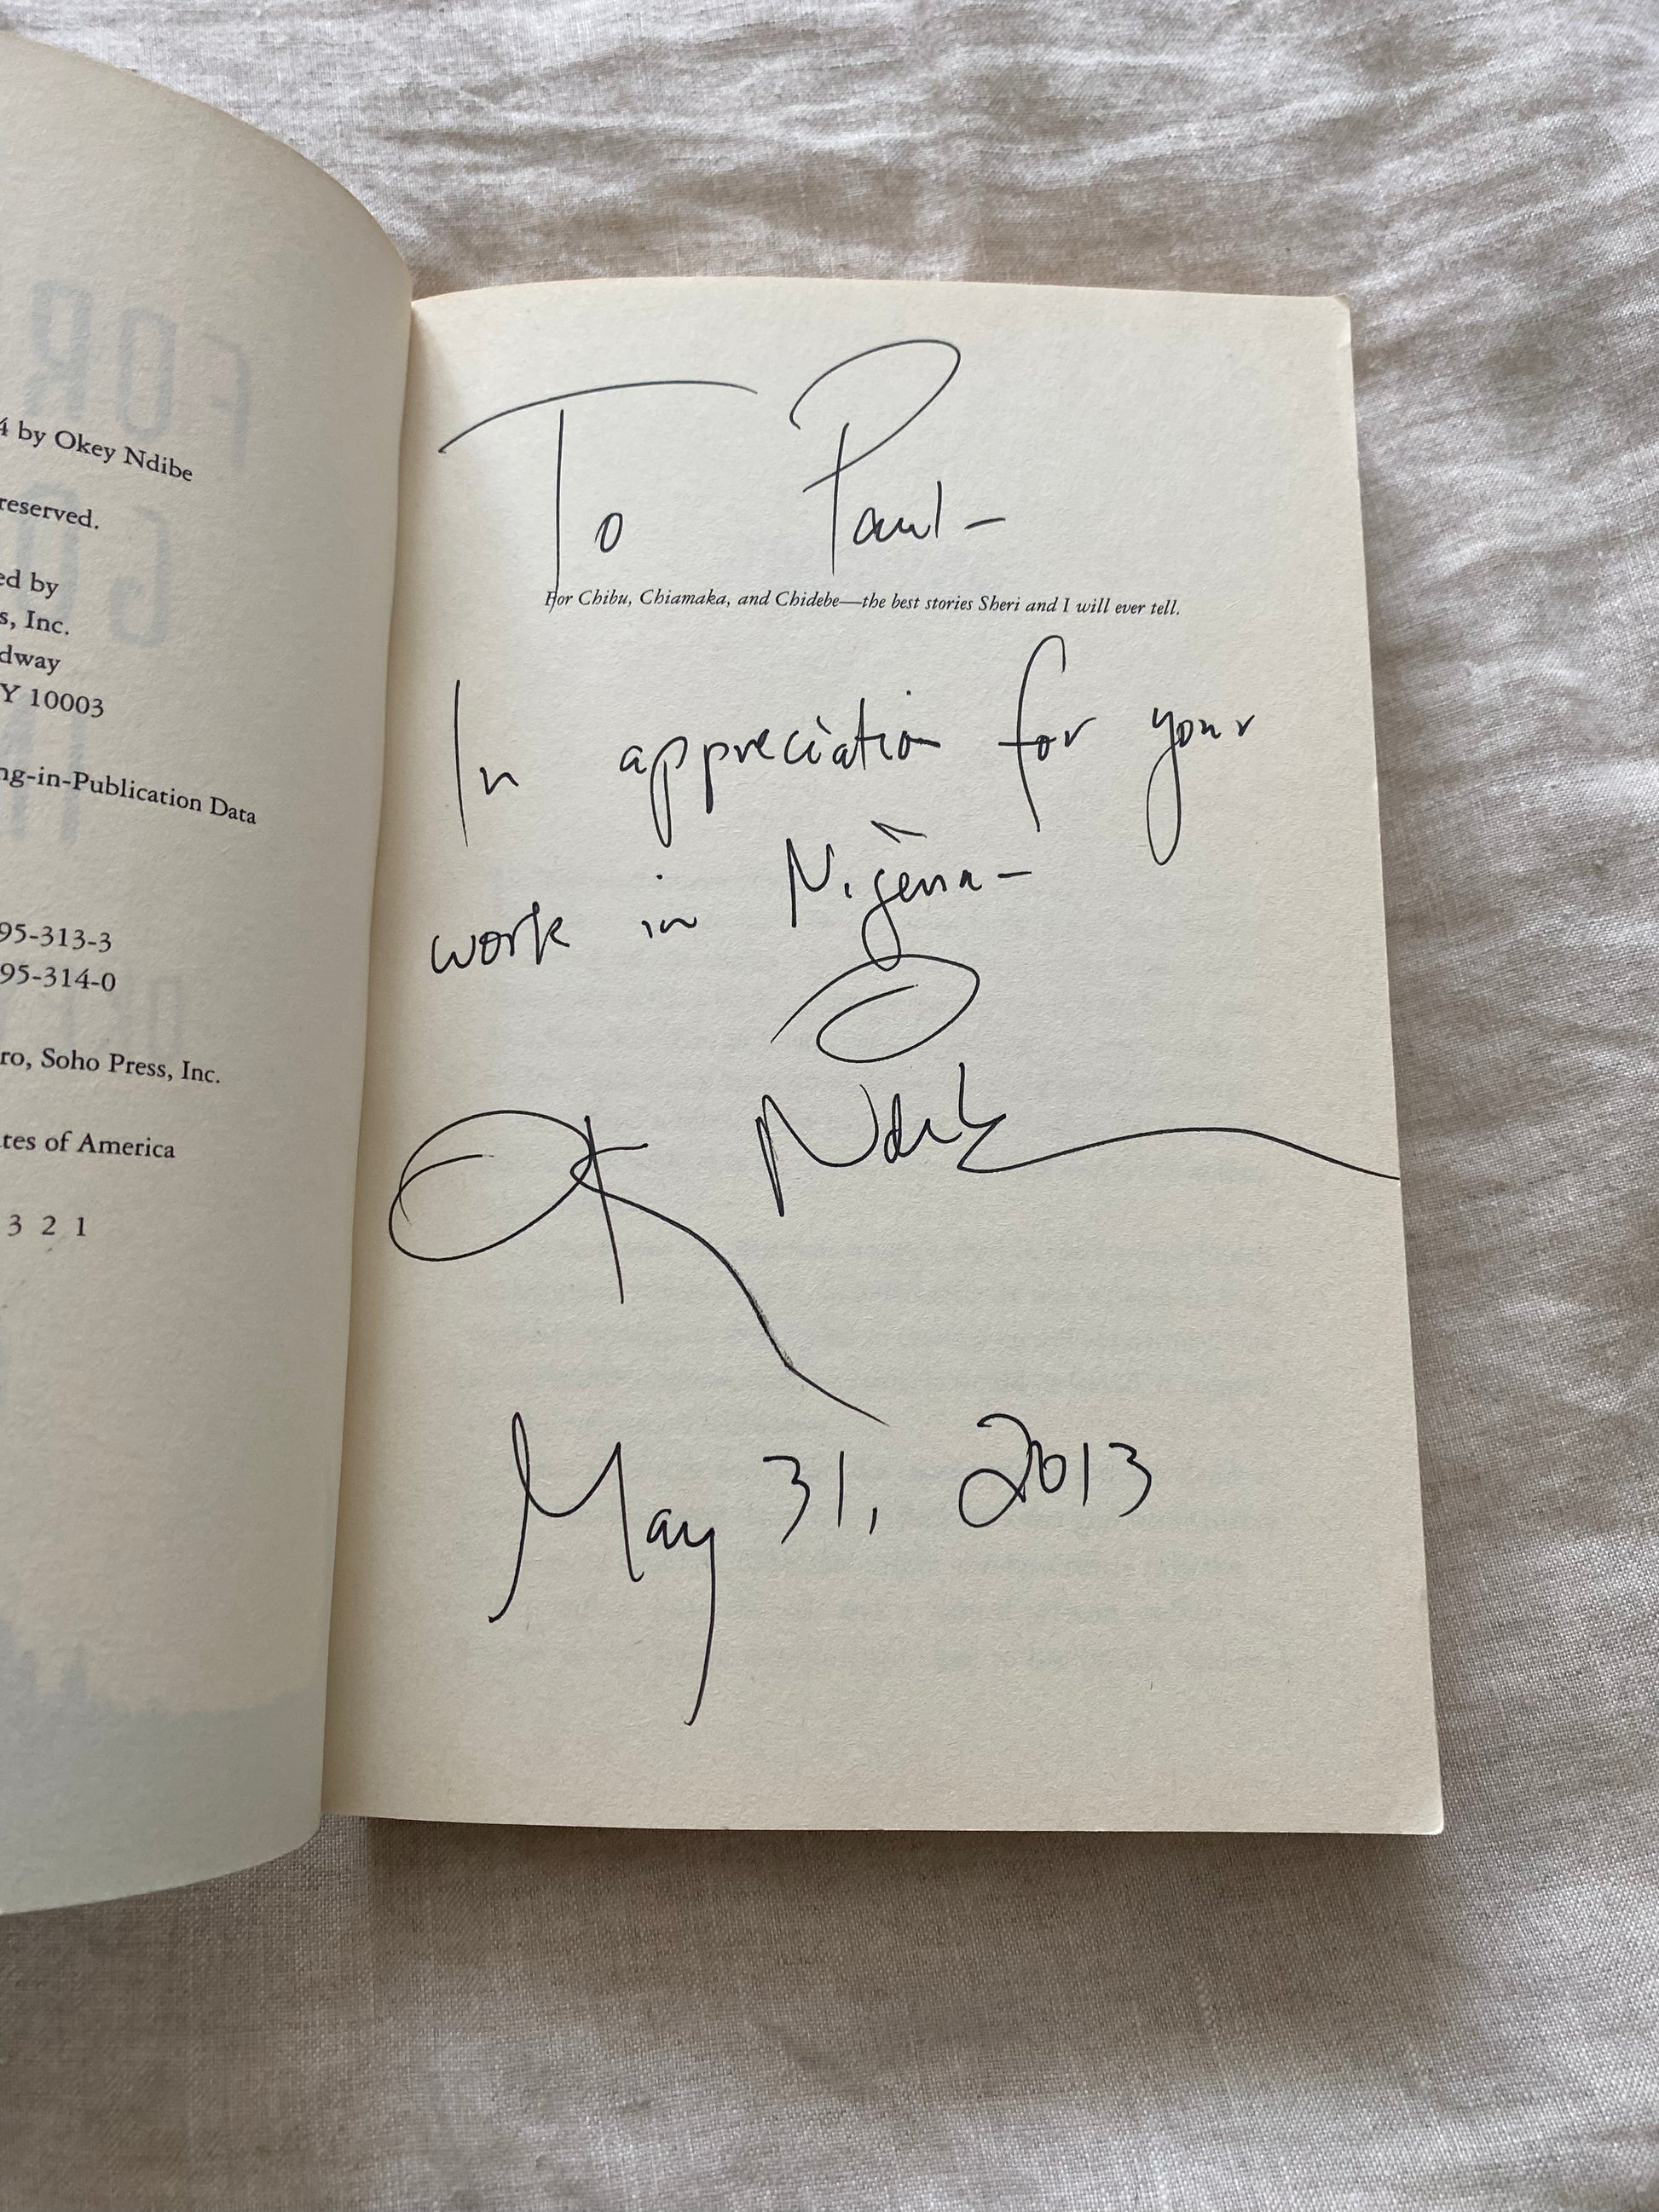 4 by Okey Ndibe
reserved.
ed by
s, Inc.
dway
Y 10003
ng-in-Publication Data
95-313-3
95-314-0
ro, Soho Press, Inc.
tes of America
3 2 1
To Paul-
For Chibu, Chiamaka, and Chidebe—the best stories Sheri and I will ever tell.
In appreciation for your
work in Nigeria-
Ok Ndibe
May 31, 2013